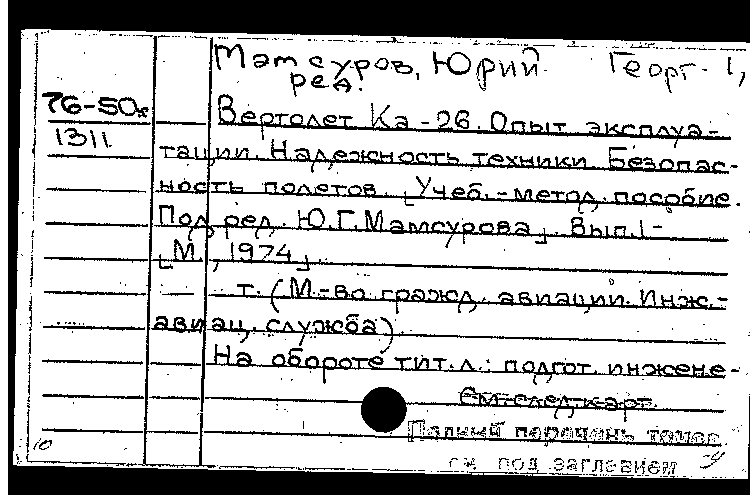 Мамсуров, Юрий Георг. 1,
ред.
76-50к
1311
Вертолет Ка-26. Опыт эксплуа-
тации. Надежность техники. Безопас-
ность полетов. [Учеб.-метод. пособие.
Под ред. Ю.Г. Мамсурова]. Вып. 1-
[М., 1974]
т. (М-во гражд. авиации. Инж.-
авиац. служба)
На обороте тит. л.: подгот. инжене-
См. след. карт.
Полный перечень томов
см под заглавием
10